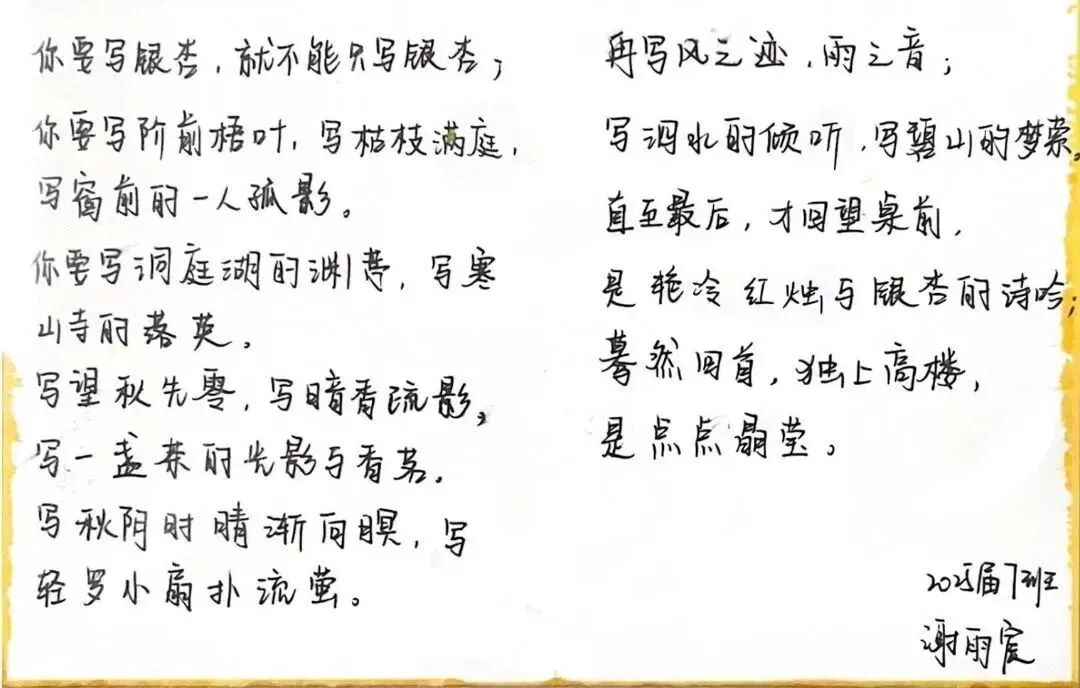 你要写银杏，就不能只写银杏；
你要写阶前梧叶，写枯枝满庭，
写窗前的一人孤影。
你要写洞庭湖的渊渟，写寒
山寺的落英。
写望秋先零，写暗香疏影，
写一盏茶的光影与香茗。
写秋阴时晴渐向暝，写
轻罗小扇扑流萤。
再写风之迹，雨之音；
写泗水的倾听，写璧山的梦萦。
直至最后，才回望桌前，
是艳冷红烛与银杏的诗吟；
蓦然回首，独上高楼，
是点点晶莹。
2025届7班
谢雨宸